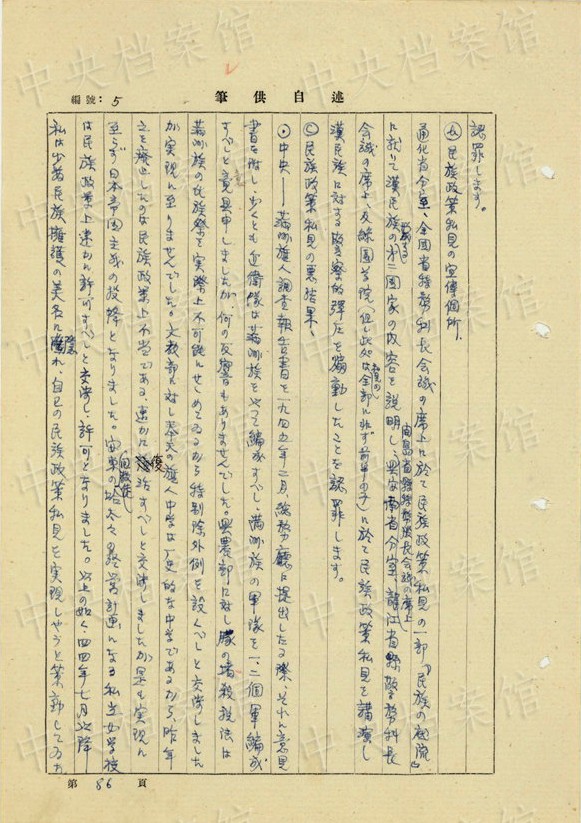 編號：5
筆供自述
認罪します。
(ろ) 民族政策私見の宣傳個所、
通化省公室、全國省特務科長会議の席上に於て民族政策私見の一部、「民族の
に於いて漢民族の第二國家の内容を説明し、興安南省分室、龍江省縣警務科長
会議の席上、
漢民族に対する警察的弾圧を煽動したことを認罪します。
◎民族政策私見の悪結果、
⊙中央——満洲旗人調査報告書を一九四五年二月、総務廳に提出したる際、それに意見
書を附し、少くとも近衛隊は満洲族をやって編成すべし、満洲族の軍隊を一、二個軍編成
すべしと意見申しましたが、何の反響もありませんでした。興農部に対し豚の屠殺設法は
満洲族の民族祭を実際上不可能にせしめてゐるから特別除外例を設くべしと交渉しました
が実現に至りませんでした。文教部に対し奉天の旗人中学は歴史的な中学であるから、昨年
之を廃止したのは民族政策上不当である、速かに復旧すべしと交渉しましたが是も実現に
至らず日本帝國主義の
は民族政策上速かに許可すべしと交渉し、許可となりました。以上の如く、四四年七月以降
私は少数民族擁護の美名に隠れ、自己の民族政策私見を実現しやうと策動してゐた
第 86 頁
中央档案馆